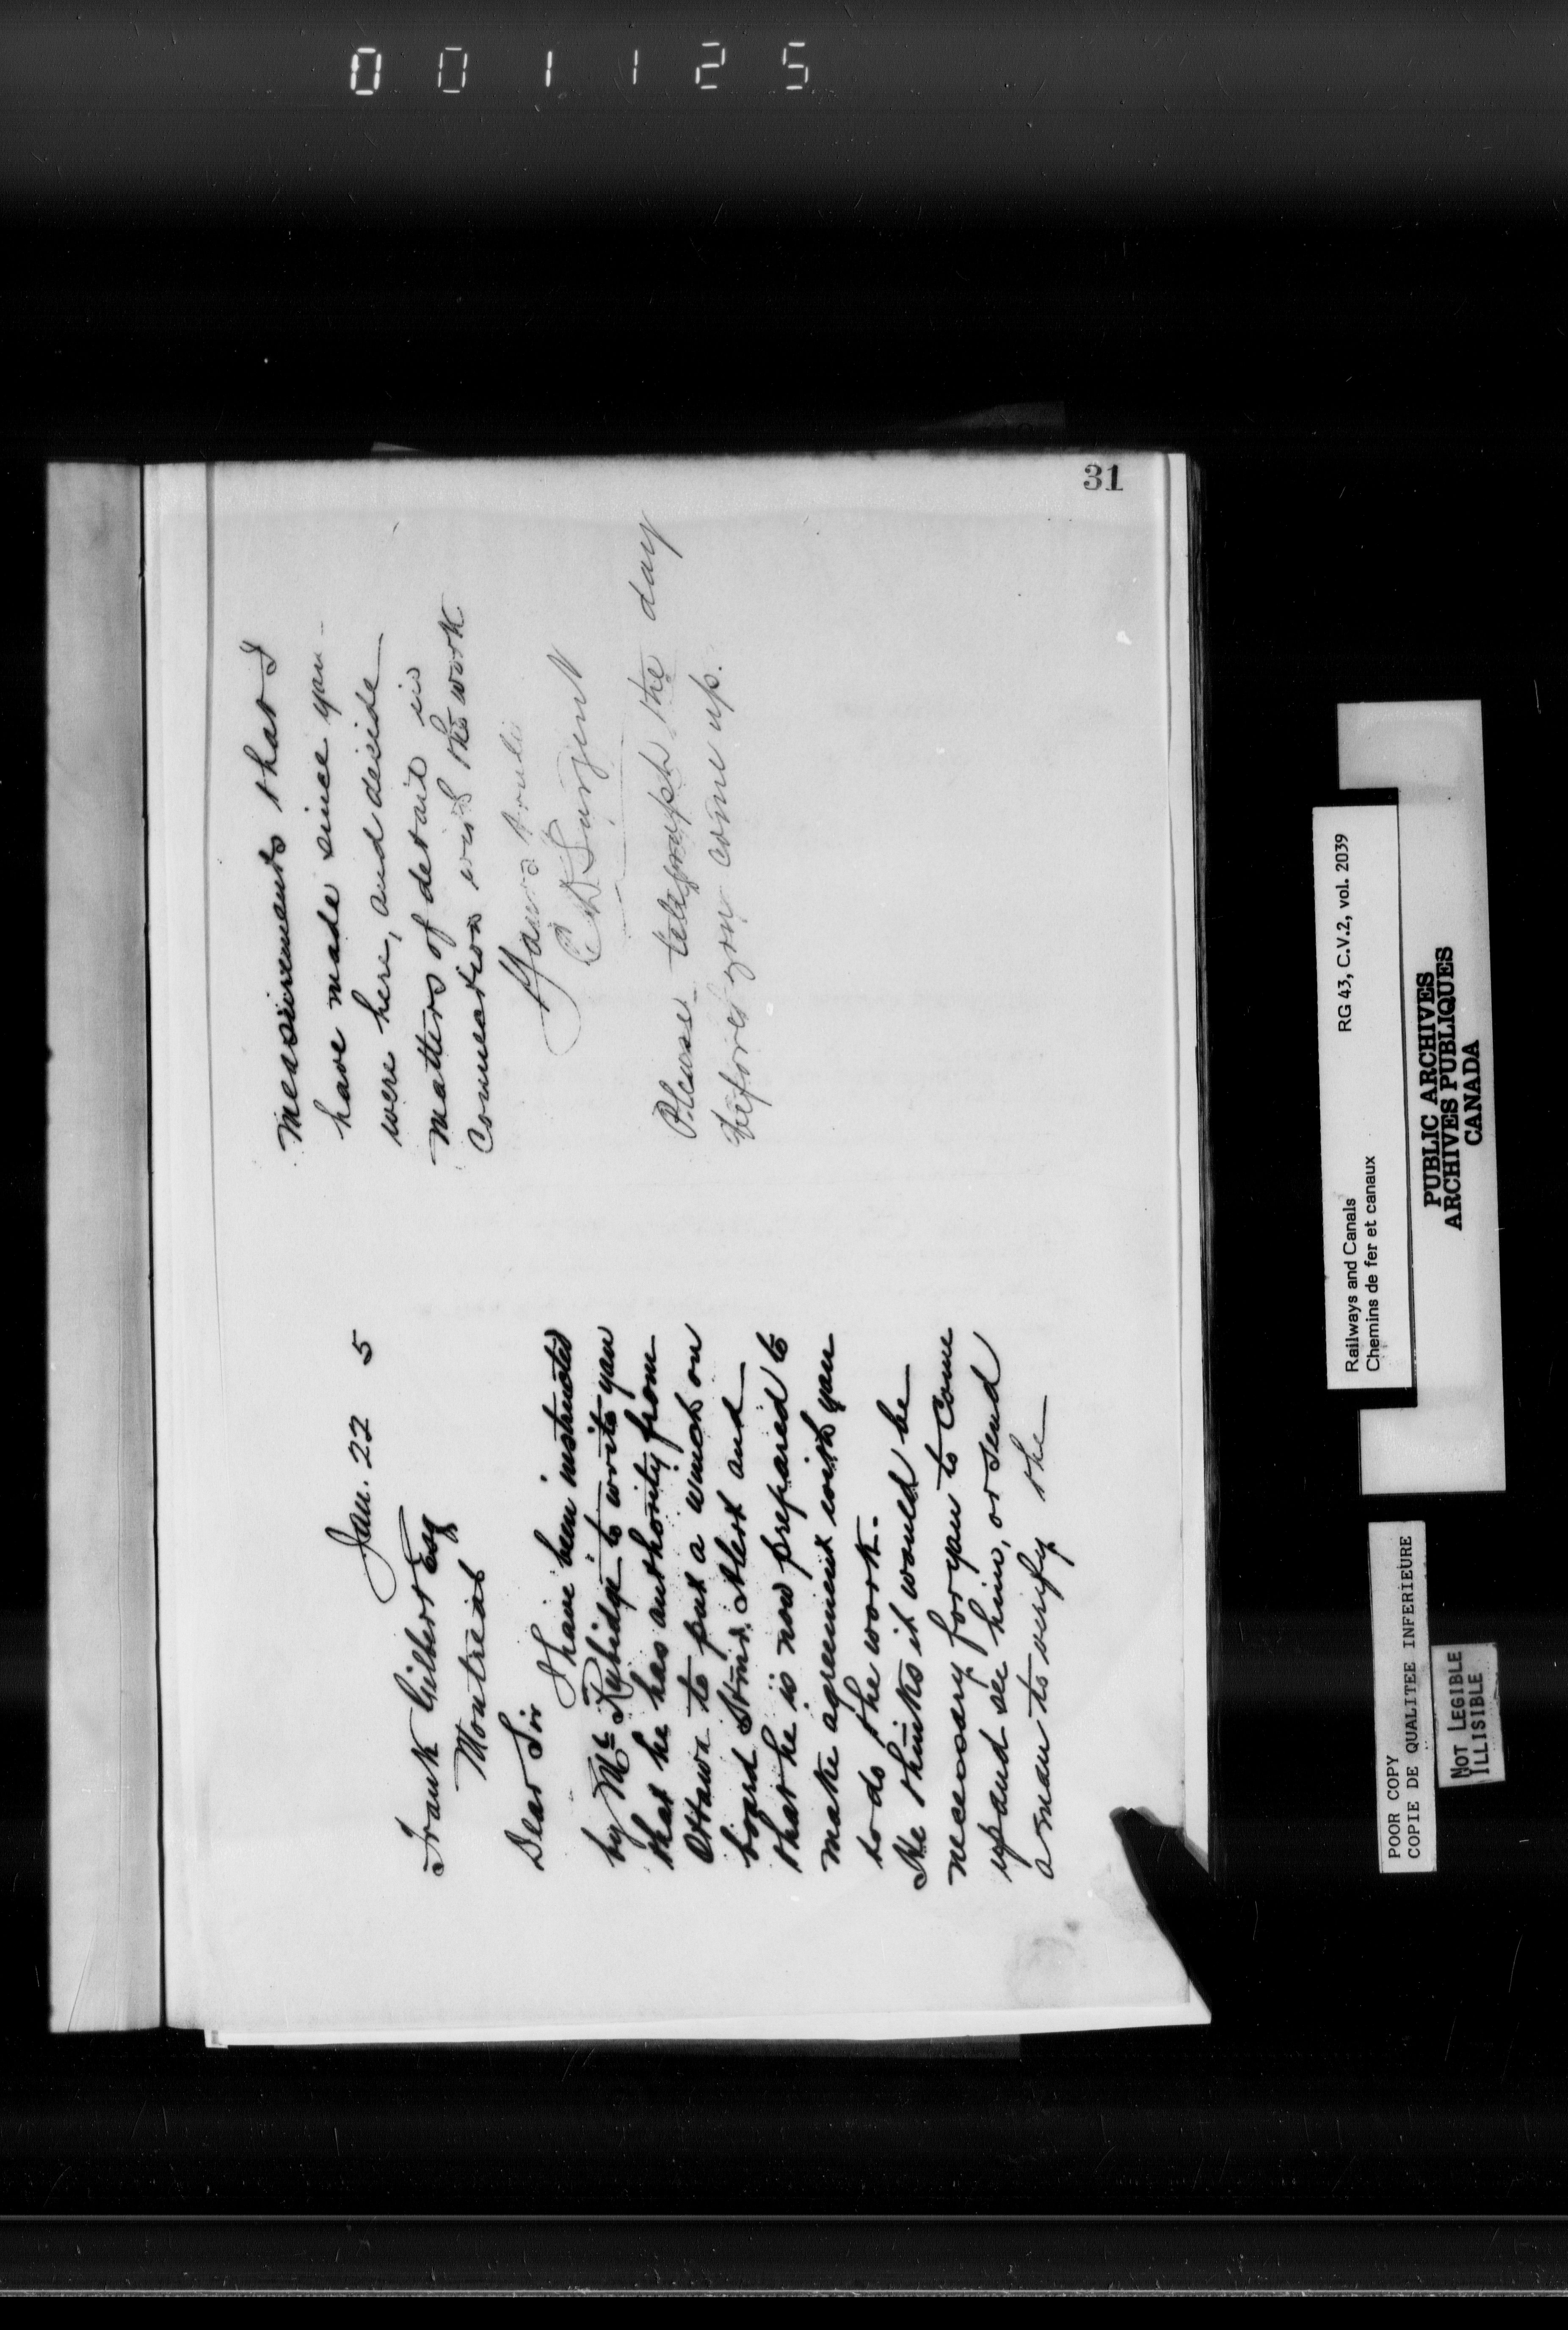 001125
31
Jan. 22 5
Frank Gilbert Esq
Montreal
Dear Sir
I have been instructed
by Mr Rubidge to write you
that he has authority from
Ottawa to put a winch on
board Stmr. Alert and
that he is now prepared to
make agreement with you
to do the work.
He thinks it would be
necessary for you to come
up and see him, or send
a man to verify the
measurements that I
have made since you
were here, and decide
matters of detail in
connection with the work
Yours truly
C D Sargent
Please telegraph the day
before you come up.
Railways and Canals RG 43, C.V.2, vol. 2039
Chemins de fer et canaux
PUBLIC ARCHIVES
ARCHIVES PUBLIQUES
CANADA
POOR COPY
COPIE DE QUALITEE INFERIEURE
NOT LEGIBLE
ILLISIBLE